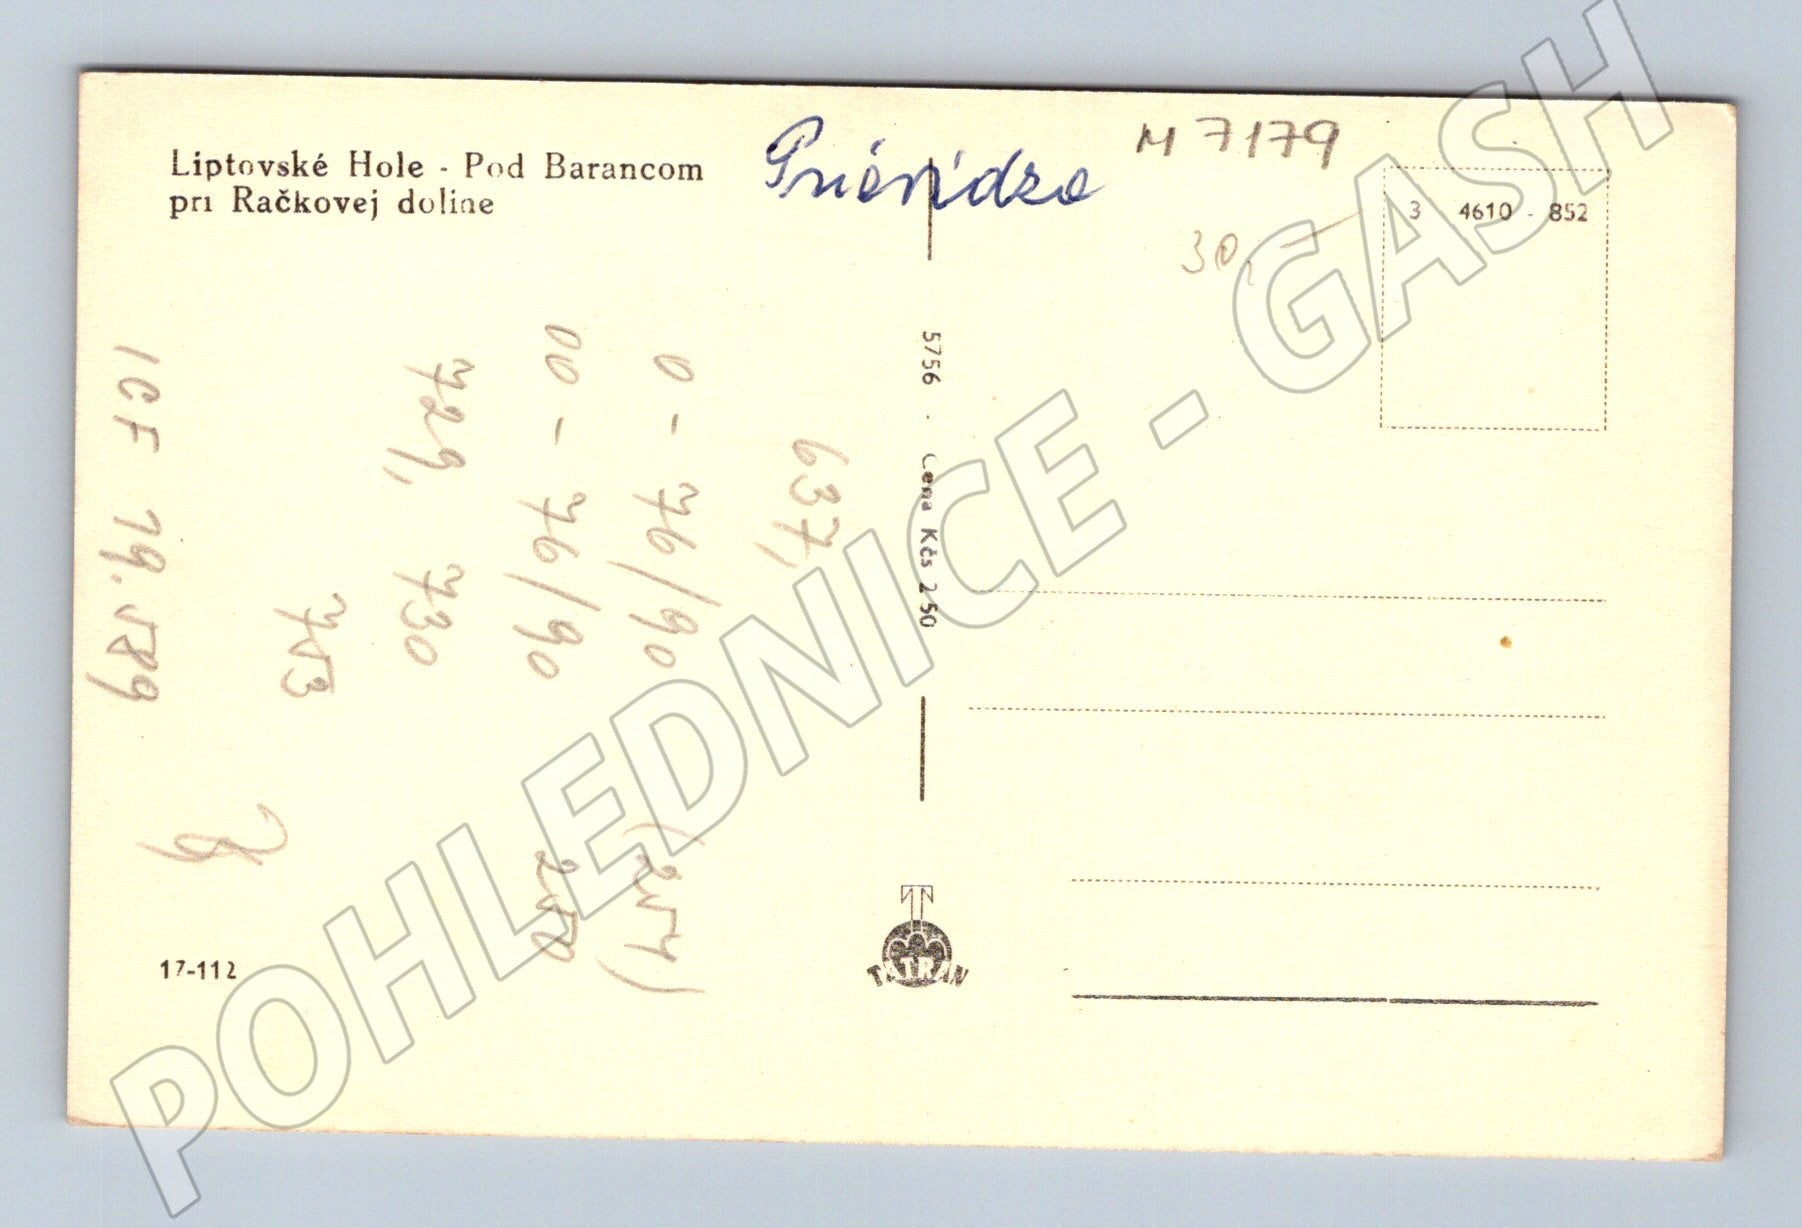 Liptovské Hole - Pod Barancom
pri Račkovej doline
M 7179
30,-
3 4610 - 852
5756 - Cena Kčs 2.50
637,
0 - 76/90
00 - 76/90
2550
729, 730
753
ICF 19.589
17-112
TATRAN
POHLEDNICE - GASH